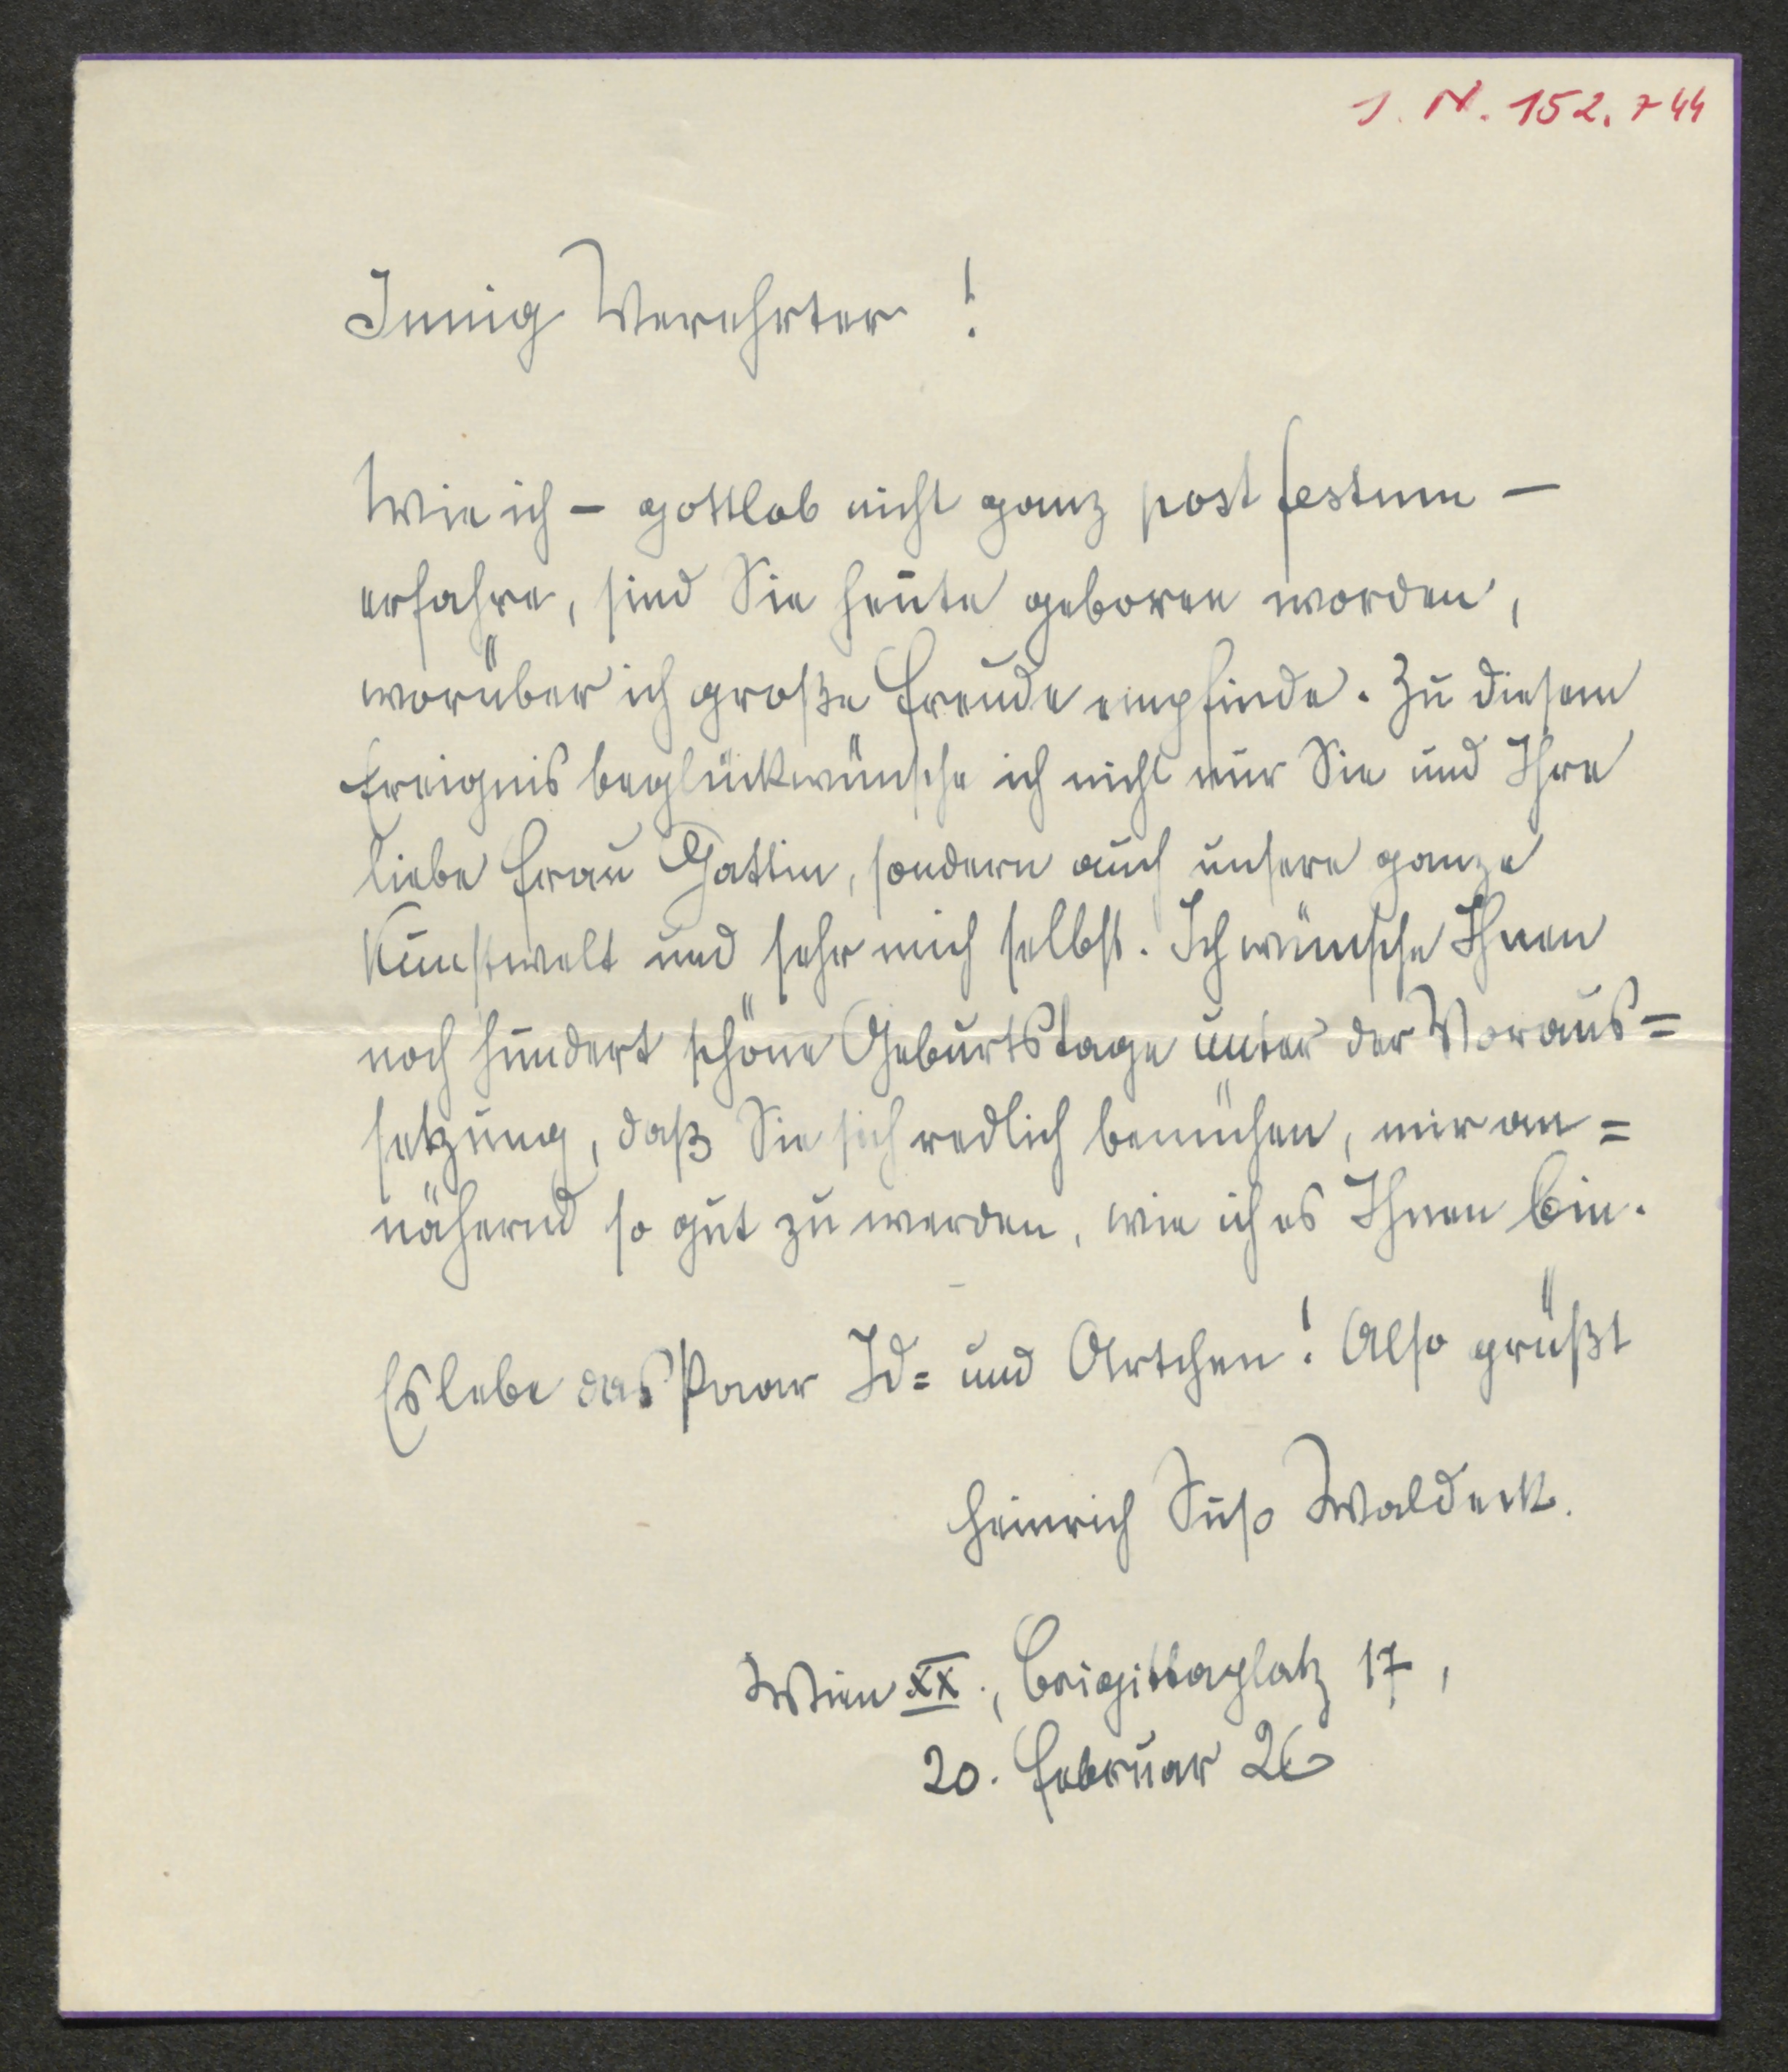 J. N. 152.744
Innig Verehrter!
Wie ich – gottlob nicht ganz post festum –
erfahre, sind Sie heute geboren worden,
worüber ich große Freude empfinde. Zu diesem
Ereignis beglückwünsche ich nicht nur Sie und Ihre
liebe Frau Gattin, sondern auch unsere ganze
Kunstwelt und sehr mich selbst. Ich wünsche Ihnen
noch hundert schöne Geburtstage unter der Voraus=
setzung, daß Sie sich redlich bemühen, mir an=
nähernd so gut zu werden, wie ich es Ihnen bin.
Es lebe das Paar Id= und Artchen! Also grüßt
Heinrich Suso Waldeck.
Wien XX., Brigittaplatz 17,
20. Februar 26